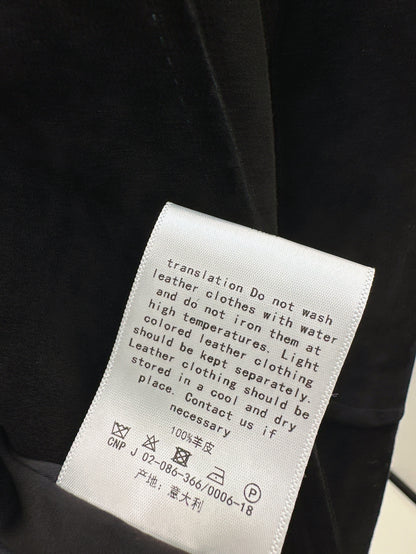 translation Do not wash
leather clothes with water
and do not iron them at
high temperatures. Light
colored leather clothing
should be kept separately.
Leather clothing should be
stored in a cool and dry
place. Contact us if
necessary
100%羊皮
P
CNP J 02-086-366/0006-18
产地:意大利